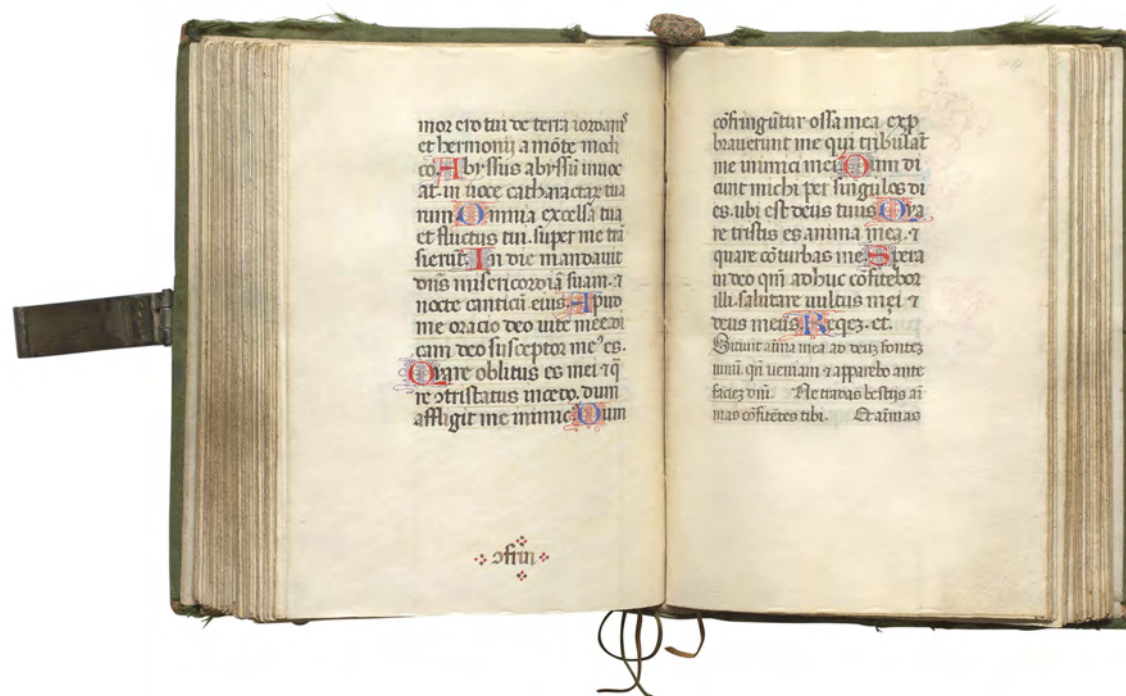 mor ero tui de terra iordanis
et hermonij a mōte modi
co. Abyssus abyssū inuoc
at. in uoce catharactar tua
rum. Omnia excelsa tua
et fluctus tui. super me trā
sierūt. In die mandauit
dn̄s misericordiā suam. ⁊
nocte canticū eius. Apud
me oracio deo uite mee. di
cam deo susceptor meꝰ es.
Quare oblitus es mei ⁊ q̄
re ꝯtristatus incedo. dum
affligit me inimicꝰ. Dum
ꝯfrin
cōfringūtur ossa mea exp
brauerunt me qui tribulāt
me inimici mei. Dum di
cunt michi per singulos di
es. ubi est deus tuus. Qua
re tristis es. anima mea. ⁊
quare cōturbas me. Spera
in deo qm̄ adhuc cōfitebor
illi. salutare uultus mei ⁊
deus meus. Reqez. et.
Sitiuit aīma mea ad deuz fontez
uiuū. qn̄ ueniam ⁊ apparebo ante
faciez dnī. Ne tradas bestijs ai
mas cōfitētes tibi. Et aīmas